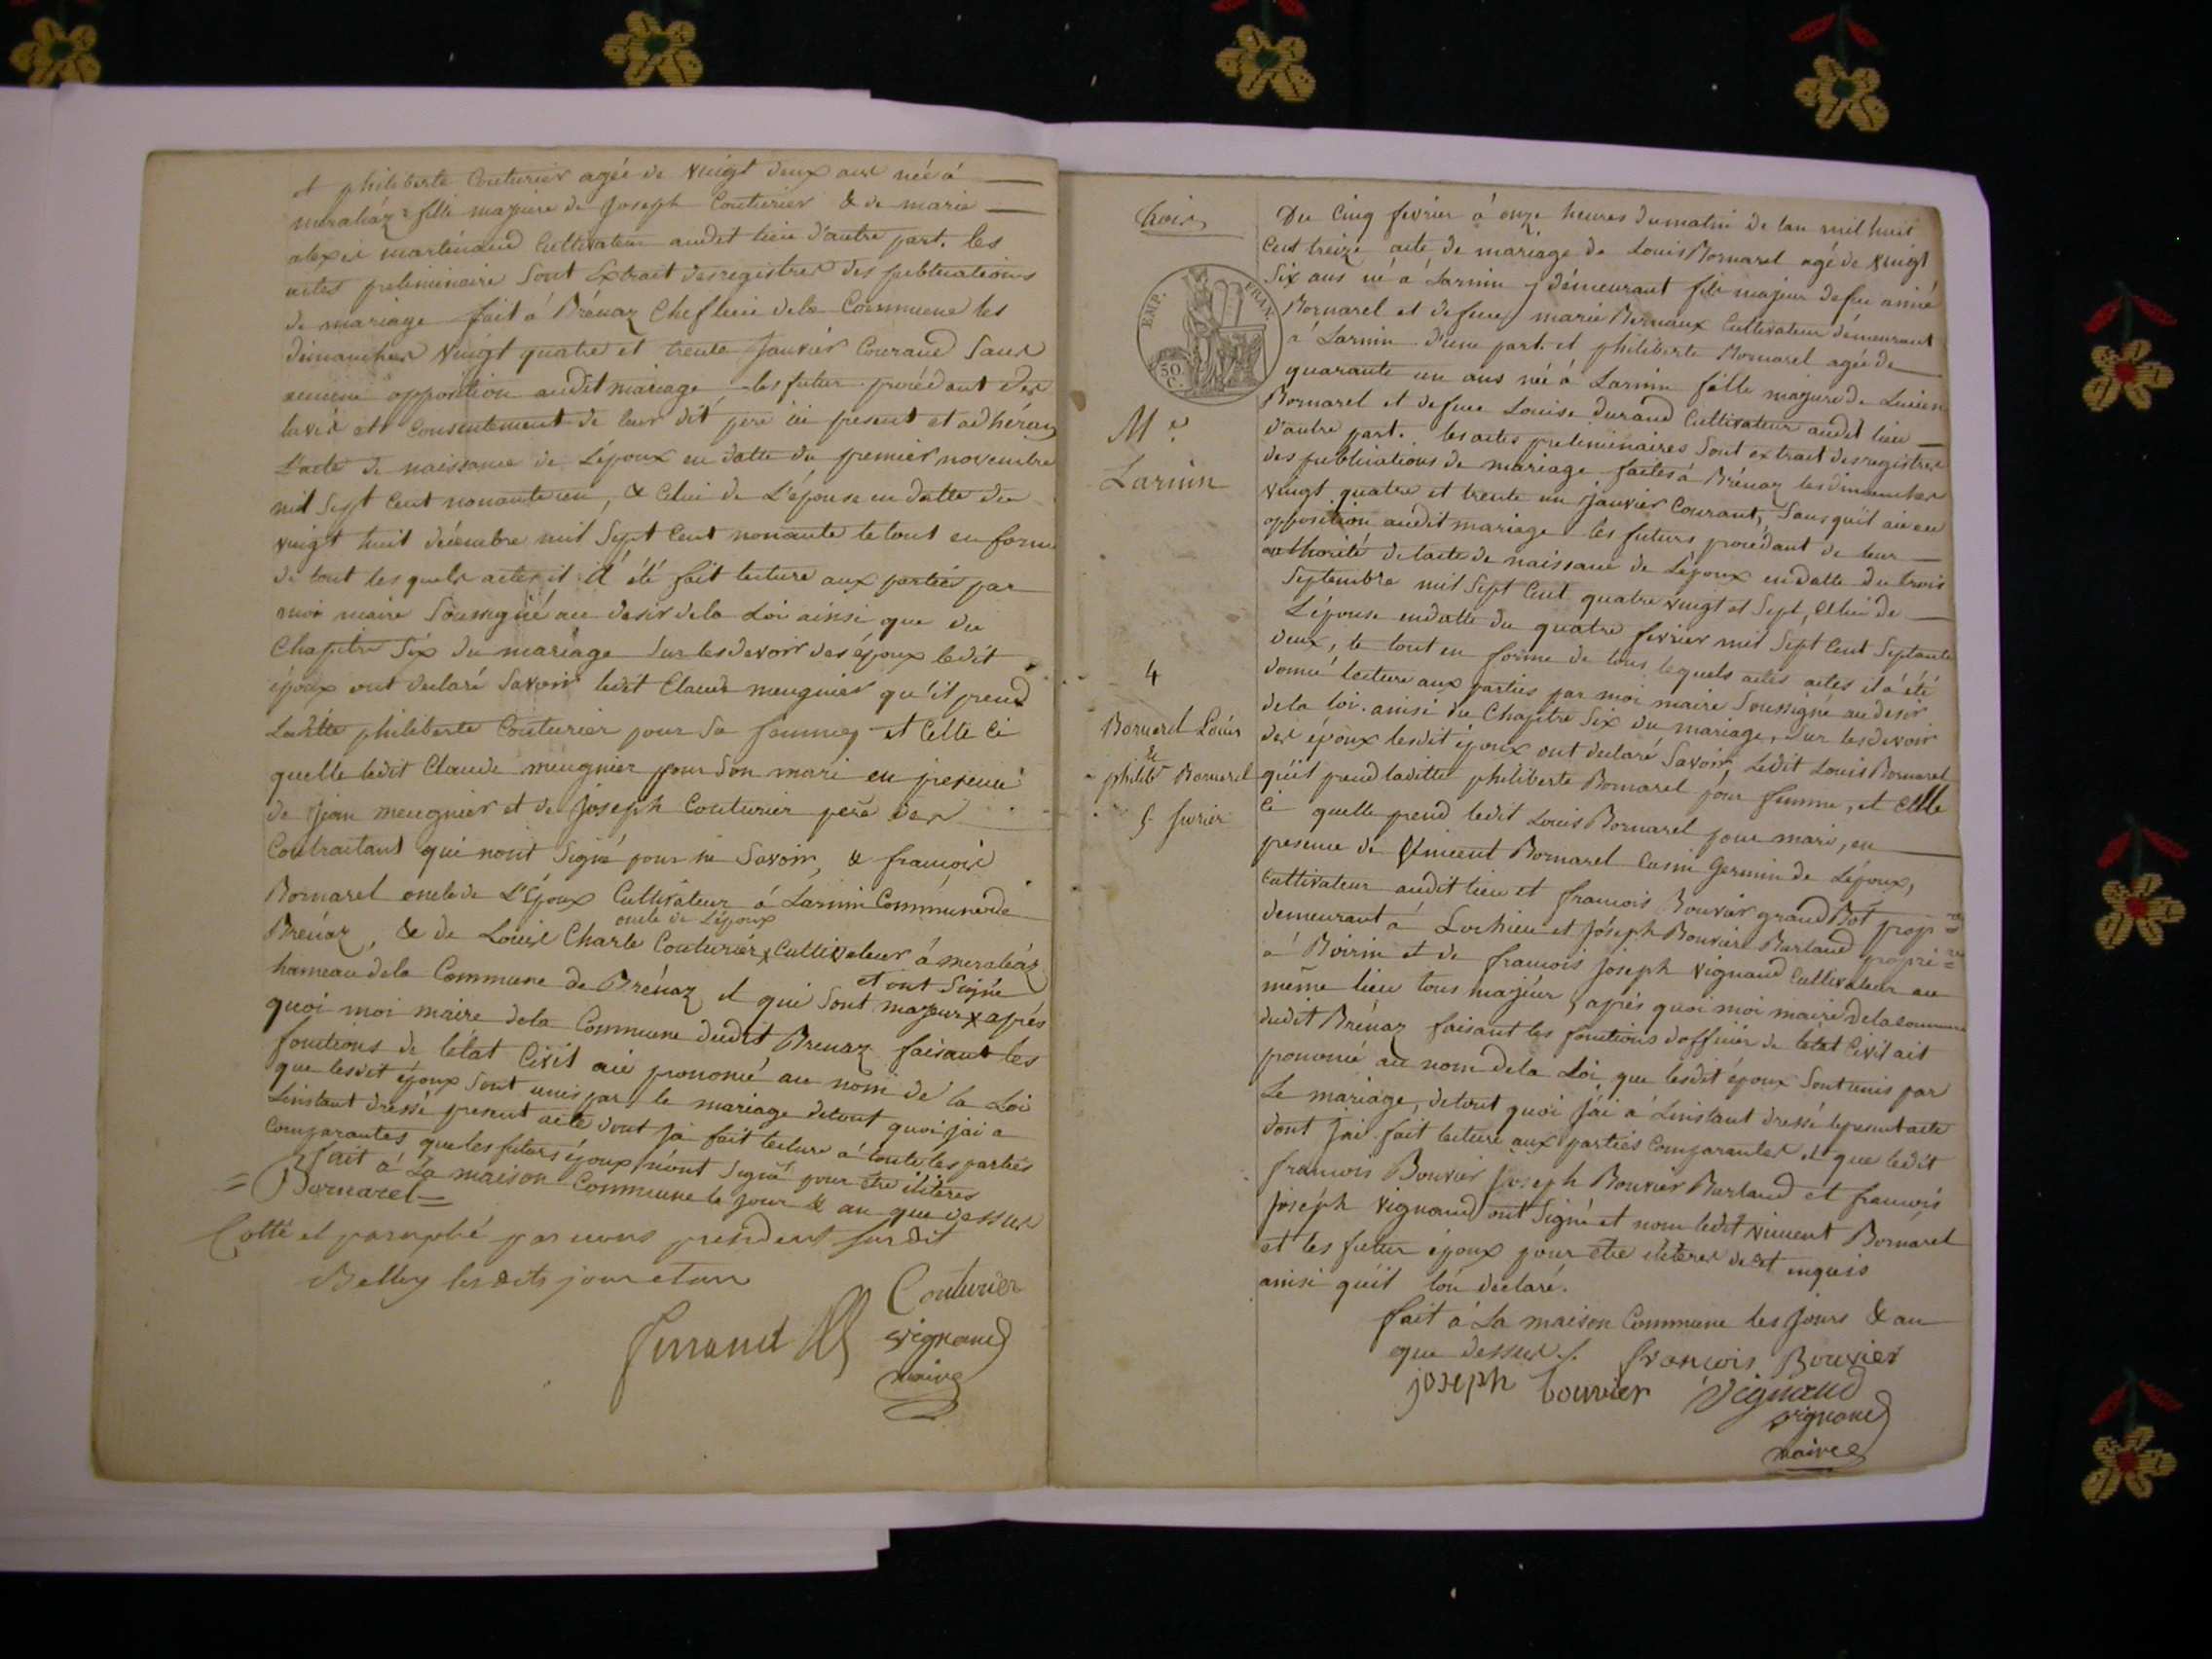 et philiberte Couturier agée de vingt deux ans née á
meraléaz fille majeure de Joseph Couturier & de marie
alexis martinand Cultivateur audit lieu d'autre part. les
actes preliminaire Sont Extrait desregistres des publications
de mariage fait á Brénaz Cheflieu dela Commune les
dimanches vingt quatre et trente Janvier Courand Sans
aucune opposition audit mariage les futur procédant des
lavis et Consentement de leur dit pere ici present et adhérans
L'acte de naissance de L'époux en datte du premier novembre
mil Sept Cent nonante un, & Celui de L'épouse en datte du
vingt huit décembre mil Sept Cent nonante le tout en forme
de tout les quels actes il á été fait lecture aux parties par
moi maire Soussigné au desir dela Loi ainsi que du
Chapitre Six du mariage Sur les devoir des époux le dit
époux ont declaré Savoir ledit Claude meugnier qu'il prend
Ladite philiberte Couturier pour Sa femme et Celle Ci
quelle ledit Claude meugnier pour Son mari en presence
de Jean meugnier et de Joseph Couturier pere des
Contractant qui nont Signé pour ne Savoir, & françois
Bornarel oncle de L'Époux Cultivateur á Larnin Commune de
oncle de L'époux
Brénaz, & de Louis Charle Couturier x Cultivateur á meraléaz
hameau dela Commune de Brénaz et qui Sont majeur x aprés
et ont Signé
quoi moi maire dela Commune dudit Brenaz faisant les
fonctions de létat Civil aié prononcé au nom de la Loi
que lesdit époux Sont unis par le mariage detout quoi jai a
Linstant dressé present acte dont Jai fait lecture á toute les parties
Comparantes que les futurs époux n'ont Signé pour etre iliteres
fait á La maison Commune le jour & an que dessus
= Bornarel =
Cotté et paraphé par nous president sur dit
Belley les dits jour et an
Couturier
vignand
maire
trois
EMP. FRAN.
50 C.
Me
Larnin
4
Bornarel Louis
&
philibte Bornarel
5 fevrier
Du Cinq fevrier á onze heures dumatin de lan mil huit
Cent treize acte de mariage de Louis Bornarel agé de vingt
Six ans né á Larnin y démeurant fils majeur defeu aimé
Bornarel et defeue marie Bernaux Cultivateur démeurant
á Larnin d'une part. et philiberte Bornarel agée de
quarante un ans née á Larnin fille majure de Lucien
Bornarel et defeue Louise durand Cultivateur audit lieu
d'autre part. les actes preliminaires Sont extrait desregistres
des publications de mariage faites á Brénaz les dimanches
vingt quatre et trente un janvier Courant, Sans quil aie eu
opposition audit mariage les futurs procédant de leur
authorité delacte de naissance de L'époux en datte du trois
Septembre mil Sept Cent quatre vingt et Sept, Celui de
L'épouse endatte du quatre fevrier mil Sept Cent Septante
deux, le tout en forme de tous lequels actes actes il á été
donné lecture aux parties par moi maire Soussigné au desir
dela loi. ainsi du Chapitre Six du mariage, Sur les devoir
des époux lesdit époux ont declaré Savoir, Ledit Louis Bornarel
qu'il prend laditte philiberte Bornarel pour femme, et Celle
Ci quelle prend ledit Louis Bornarel pour mari, en
presence de Vincent Bornarel Cusin Germin de L'époux,
Cultivateur audit lieu et francois Bouvier grand Bot propre
demeurant á Lochieu et Joseph Bouvier Burland propri=re
á Boirin et de francois Joseph vignand Cultivateur au
même lieu tous majeur, aprés quoi moi maire delacommune
dudit Brénaz faisant les fonctions d'officier de létat Civil ait
prononcé au nom dela Loi que lesdit époux Sont unis par
Le mariage, detout quoi jái á Linstant dressé lepresent acte
dont jai fait lecture aux parties Comparantes et que ledit
francois Bouvier Joseph Bouvier Burland et francois
joseph vignand ont Signé et nom ledit vincent Bornarel
et les futur époux pour etre iliteres dece enquis
ainsi quil lon declaré.
fait á La maison Commune les Jours & an
que dessus ./.
françois Bouvier
joseph bouvier
Vignand
vignand
maire